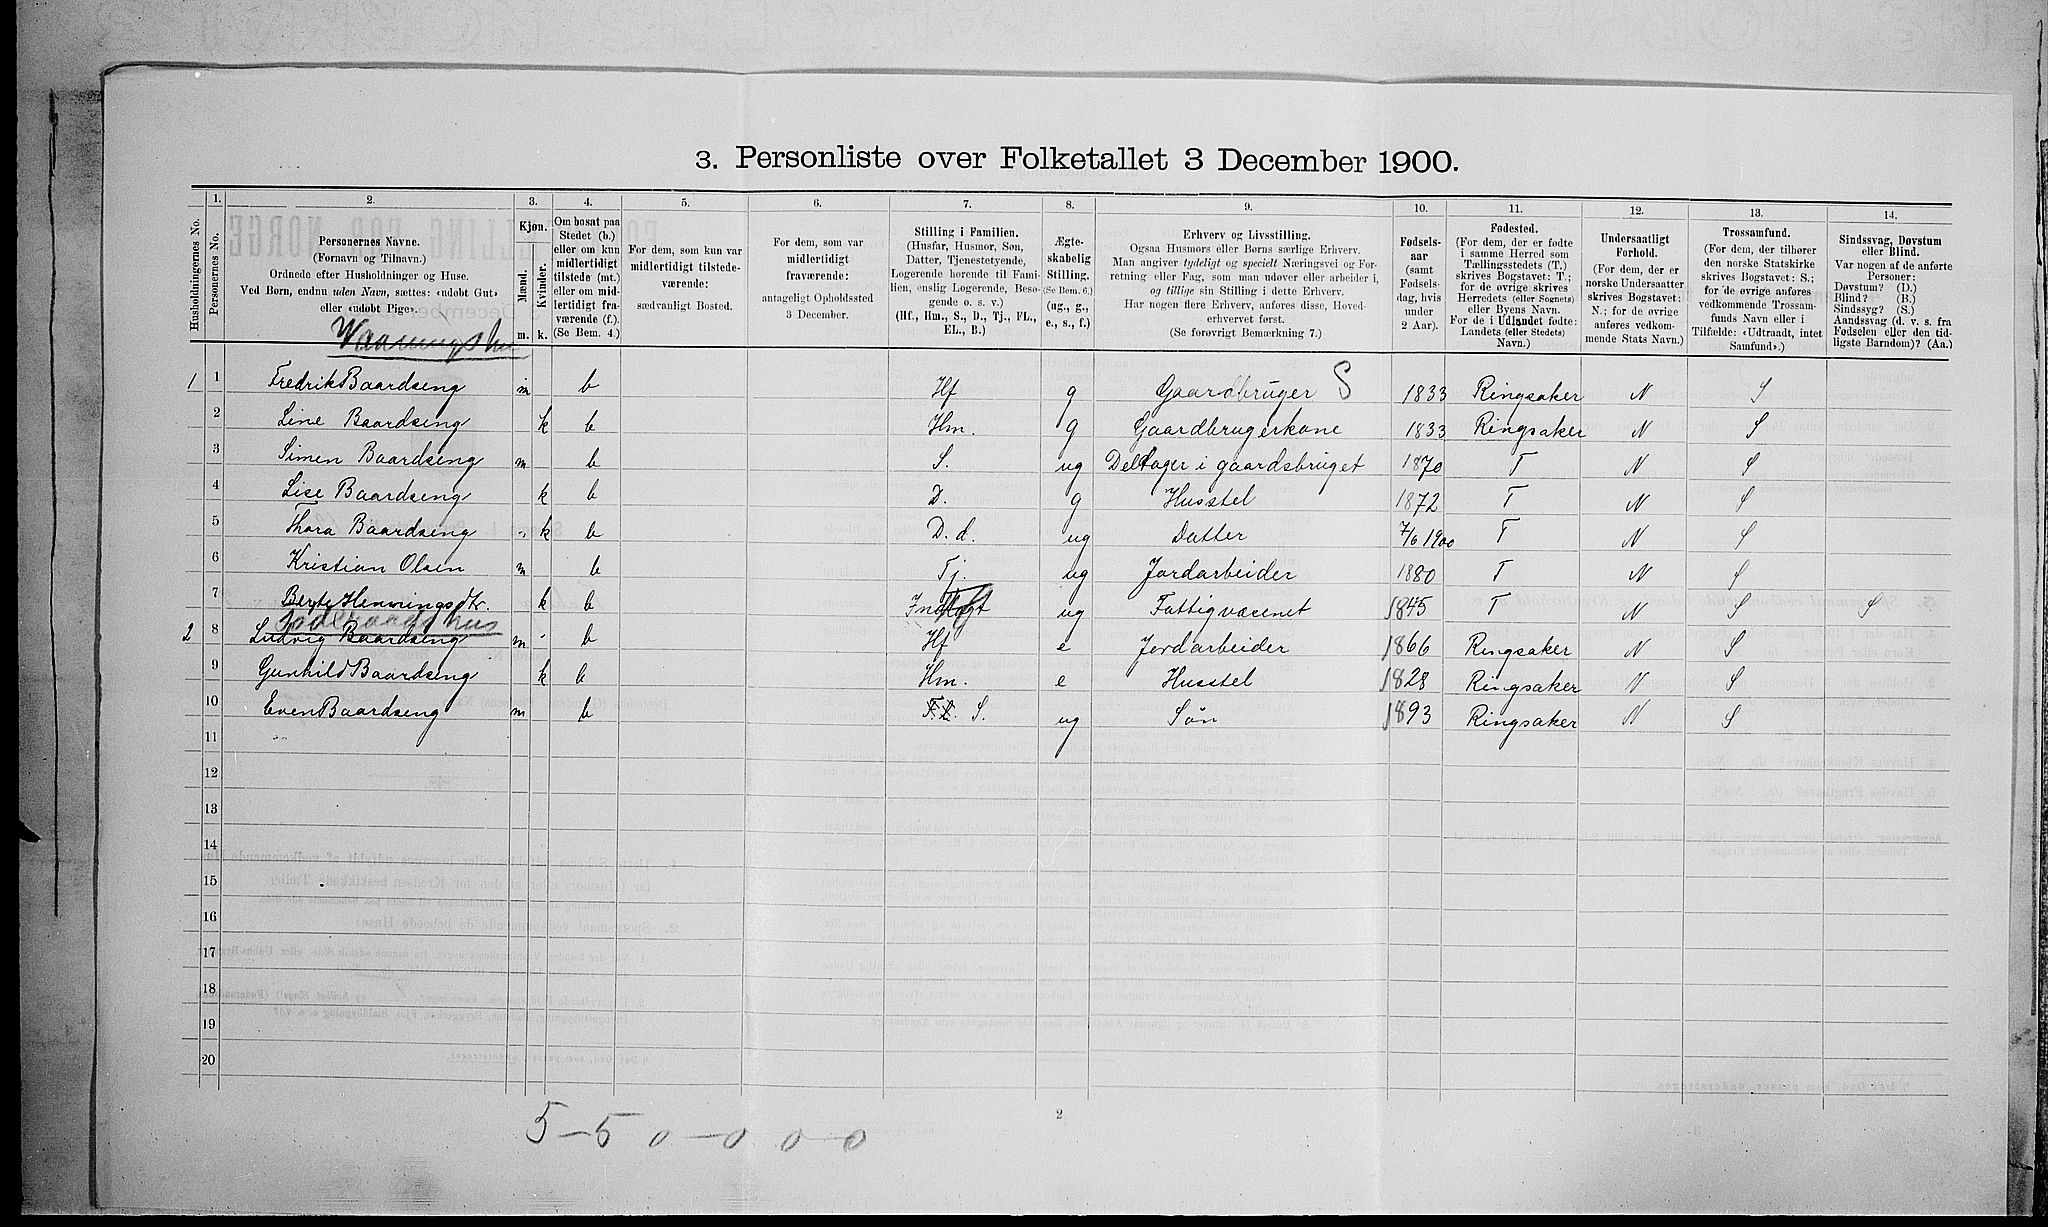 3. Personliste over Folketallet 3 December 1900.
Husholdningernes No.
1.
Personernes No.
2.
Personernes Navne.
(Fornavn og Tilnavn.)
Ordnede efter Husholdninger og Huse.
Ved Børn, endnu uden Navn, sættes: «udøbt Gut»
eller «udøbt Pige».
3.
Kjøn.
Mænd.
Kvinder.
m. k.
4.
Om bosat paa
Stedet (b.)
eller om kun
midlertidigt
tilstede (mt.)
eller om mid-
lertidigt fra-
værende (f.)
(Se Bem. 4.)
5.
For dem, som kun var
midlertidigt tilstede-
værende:
sædvanligt Bosted.
6.
For dem, som var
midlertidigt
fraværende:
antageligt Opholdssted
3 December.
7.
Stilling i Familien.
(Husfar, Husmor, Søn,
Datter, Tjenestetyende,
Logerende hørende til Fami-
lien, enslig Logerende, Besø-
gende o. s. v.)
(Hf., Hm., S., D., Tj., FL.,
EL., B.)
8.
Ægte-
skabelig
Stilling.
(Se Bem. 6.)
(ug., g.,
e., s., f.)
9.
Erhverv og Livsstilling.
Ogsaa Husmors eller Børns særlige Erhverv.
Man angiver tydeligt og specielt Næringsvei og For-
retning eller Fag, som man udøver eller arbeider i,
og tillige sin Stilling i dette Erhverv.
Har nogen flere Erhverv, anføres disse, Hoved-
erhvervet først.
(Se forøvrigt Bemærkning 7.)
10.
Fødsels-
aar
(samt
Fødsels-
dag, hvis
under
2 Aar).
11.
Fødested.
(For dem, der er fødte
i samme Herred som
Tællingsstedets (T.)
skrives Bogstavet: T.;
for de øvrige skrives
Herredets (eller Sognets)
eller Byens Navn.
For de i Udlandet fødte:
Landets (eller Stedets)
Navn.)
12.
Undersaatligt
Forhold.
(For dem, der er
norske Undersaatter
skrives Bogstavet:
N.; for de øvrige
anføres vedkom-
mende Stats Navn.)
13.
Trossamfund.
(For dem, der tilhører
den norske Statskirke
skrives Bogstavet: S.;
for de øvrige anføres
vedkommende Trossam-
funds Navn eller i
Tilfælde: «Udtraadt, intet
Samfund».)
14.
Sindssvag, Døvstum
eller Blind.
Var nogen af de anførte
Personer:
Døvstum? (D.)
Blind? (B.)
Sindssyg? (S.)
Aandssvag (d. v. s. fra
Fødselen eller den tid-
ligste Barndom)? (Aa.)
1 1 Fredrik Baardseng m b Hf g Gaardbruger S 1833 Ringsaker N S
2 Line Baardseng k b Hm. g Gaardbrugerkone 1833 Ringsaker N S
3 Simen Baardseng m b S. ug Deltager i gaardsbruget 1870 T N S
4 Lise Baardseng k b D. g Husstel 1872 T N S
5 Thora Baardseng k b D. d. ug Datter 7/6 1900 T N S
6 Kristian Olsen m b Tj. ug Jordarbeider 1880 T N S
7 Berte Henningsdtr. k b ug Fattigvæsenet 1845 T N S S
2 8 Ludvig Baardseng m b Hf e Jordarbeider 1866 Ringsaker N S
9 Gunhild Baardseng k b Hm. e Husstel 1828 Ringsaker N S
10 Even Baardseng m b S. ug Søn 1893 Ringsaker N S
11
12
13
14
15
16
17
18
19
20
2
5-5 0-0 0-0